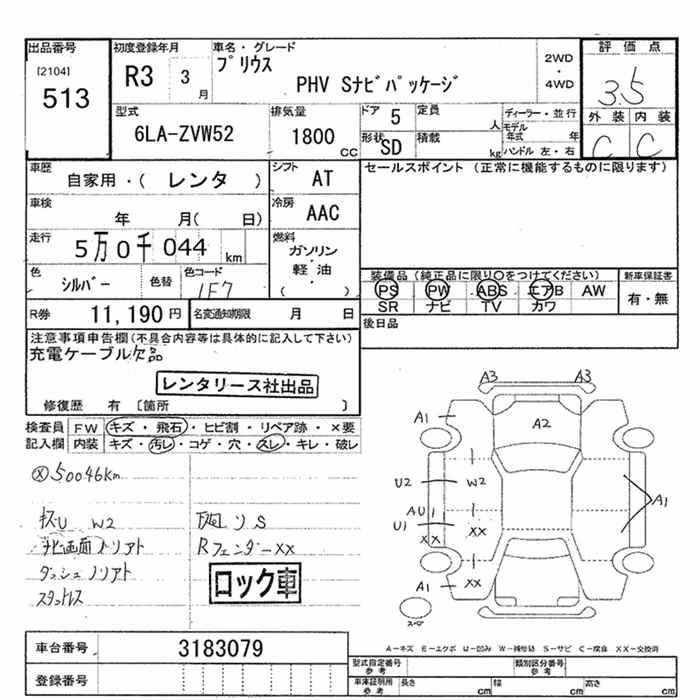 出品番号
[2104]
513
初度登録年月
R3 3月
車名・グレード
プリウス
PHV Sナビパッケージ
2WD
・
4WD
評価点
3.5
外装 内装
C C
型式
6LA-ZVW52
排気量
1800
CC
ドア 5
形状 SD
定員 人
積載 kg
ディーラー・並行
モデル年式 年
ハンドル 左・右
車歴
自家用・( レンタ )
シフト AT
車検
年 月( 日)
冷房 AAC
走行
5万0千044 km
燃料
ガソリン
・
軽・油
・
( )
色
シルバー
色替
色コード
1F7
R券 11,190円
名変通知期限 月 日
セールスポイント (正常に機能するものに限ります)
装備品(純正品に限り○をつけてください)
PS PW ABS エアB AW
SR ナビ TV カワ
新車保証書
有・無
後日品
注意事項申告欄(不具合内容等は具体的に記入して下さい)
充電ケーブル欠品
レンタリース社出品
修復歴 有 [箇所 ]
検査員記入欄
FW キズ・飛石・ヒビ割・リペア跡・×要
内装 キズ・汚レ・コゲ・穴・スレ・キレ・破レ
50046km
キズU W2
ナビ画面ノリアト
ダッシュノリアト
スタットレス
下廻りS
RフェンダーXX
ロック車
A3 A3
A1
A2
U2 W2
AU1
U1
XX XX
A1
A1 XX
スペアー
A-キズ E-エクボ U-凹み W-補修跡 S-サビ C-腐食 XX-交換済
車台番号 3183079
登録番号
型式指定番号
参考
類別区分番号
参考
車庫証明用
参考
長さ cm
幅 cm
高さ cm